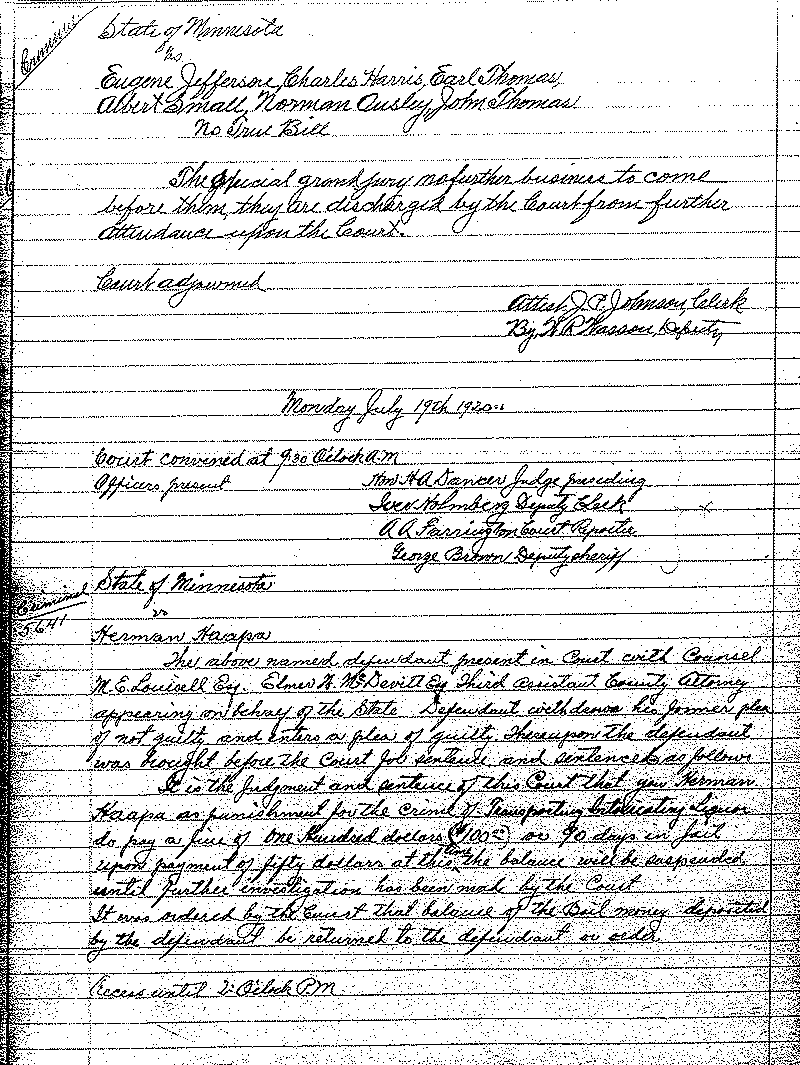 Criminal
State of Minnesota
vs
Eugene Jefferson, Charles Harris, Earl Thomas,
Albert Small, Norman Ousley, John Thomas
No True Bill
The Special grand jury no further business to come
before them they are discharged by the Court from further
attendance upon the Court.
Court adjourned
Attest J. P. Johnson, Clerk
By, W R Wasson, Deputy
Monday July 19th 1920
Court convined at 9 30 Oclock A.M
Officers present
Hon H A Dancer Judge presiding
Iver Holmberg Deputy Clerk
A A Farrington Court Reporter
George Brown Deputy Sheriff
Criminal
5641
State of Minnesota
vs
Herman Haapa
The above named defendant present in Court with Counsel
M. E. Louisell Esq. Elmer F. McDevitt Esq Third assistant County Attorney
appearing on behalf of the State Defendant withdraws his former plea
of not guilty and enters a plea of guilty. Thereupon the defendant
was brought before the Court for sentence and sentenced as follows
It is the Judgment and sentence of this Court that you Herman
Haapa as punishment for the crime of Transporting Intoxicating Liquor
do pay a fine of One Hundred dollars ($100 00) or 90 days in Jail
upon payment of fifty dollars at this time the balance will be suspended
until further investigation has been made by the Court
It was ordered by the Court that balance of the Bail money deposited
by the defendant be returned to the defendant or order
Recess until 2: Oclock P.M